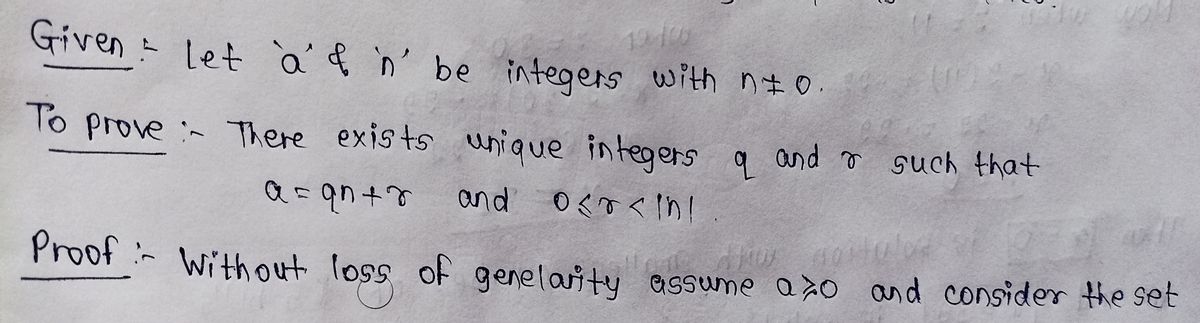 Given :- Let 'a' & 'n' be integers with n ≠ 0.
To prove :- There exists unique integers q and r such that
a = qn + r and 0 ≤ r < |n|.
Proof :- Without loss of genelarity assume a ≥ 0 and consider the set